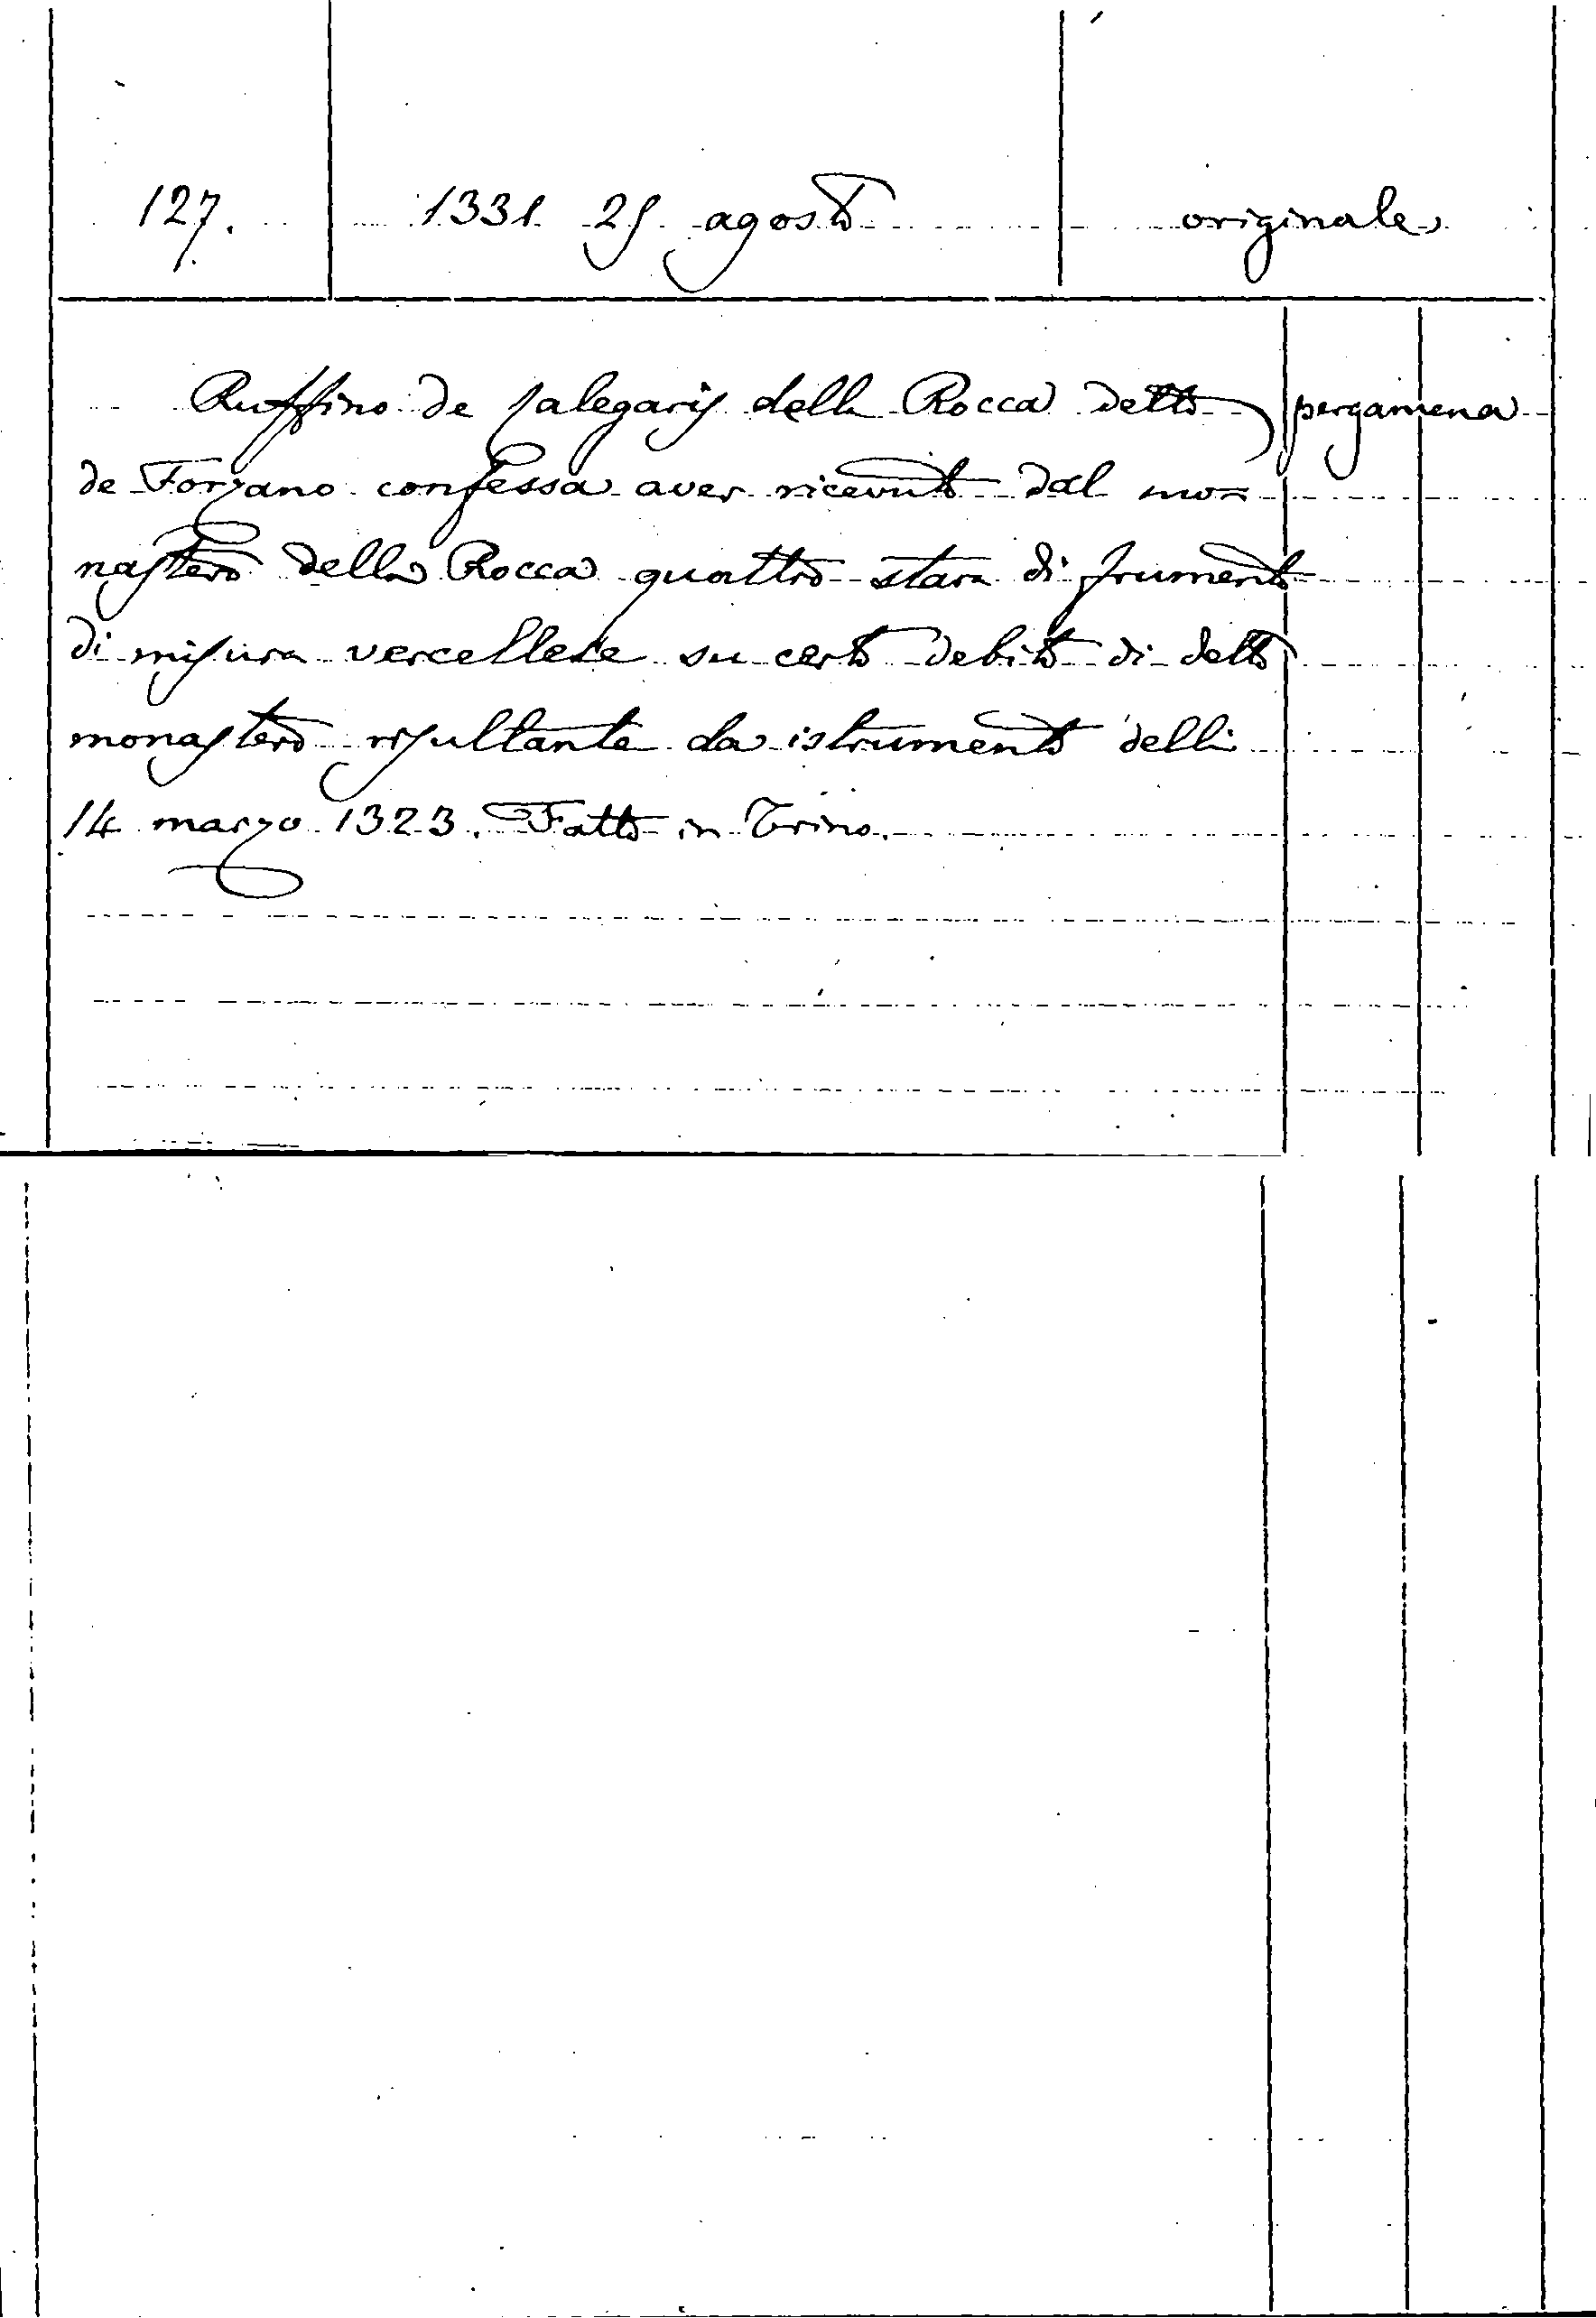 127. 1331 25 agosto originale
Ruffino de salegariis della Rocca detto pergamena
de Forzano confessa aver ricevuto dal mo=
nastero della Rocca quattro stara di frumento
di misura vercellese su certo debito di detto
monastero risultante da istrumento delli
14 marzo 1323. Fatto in Trino.